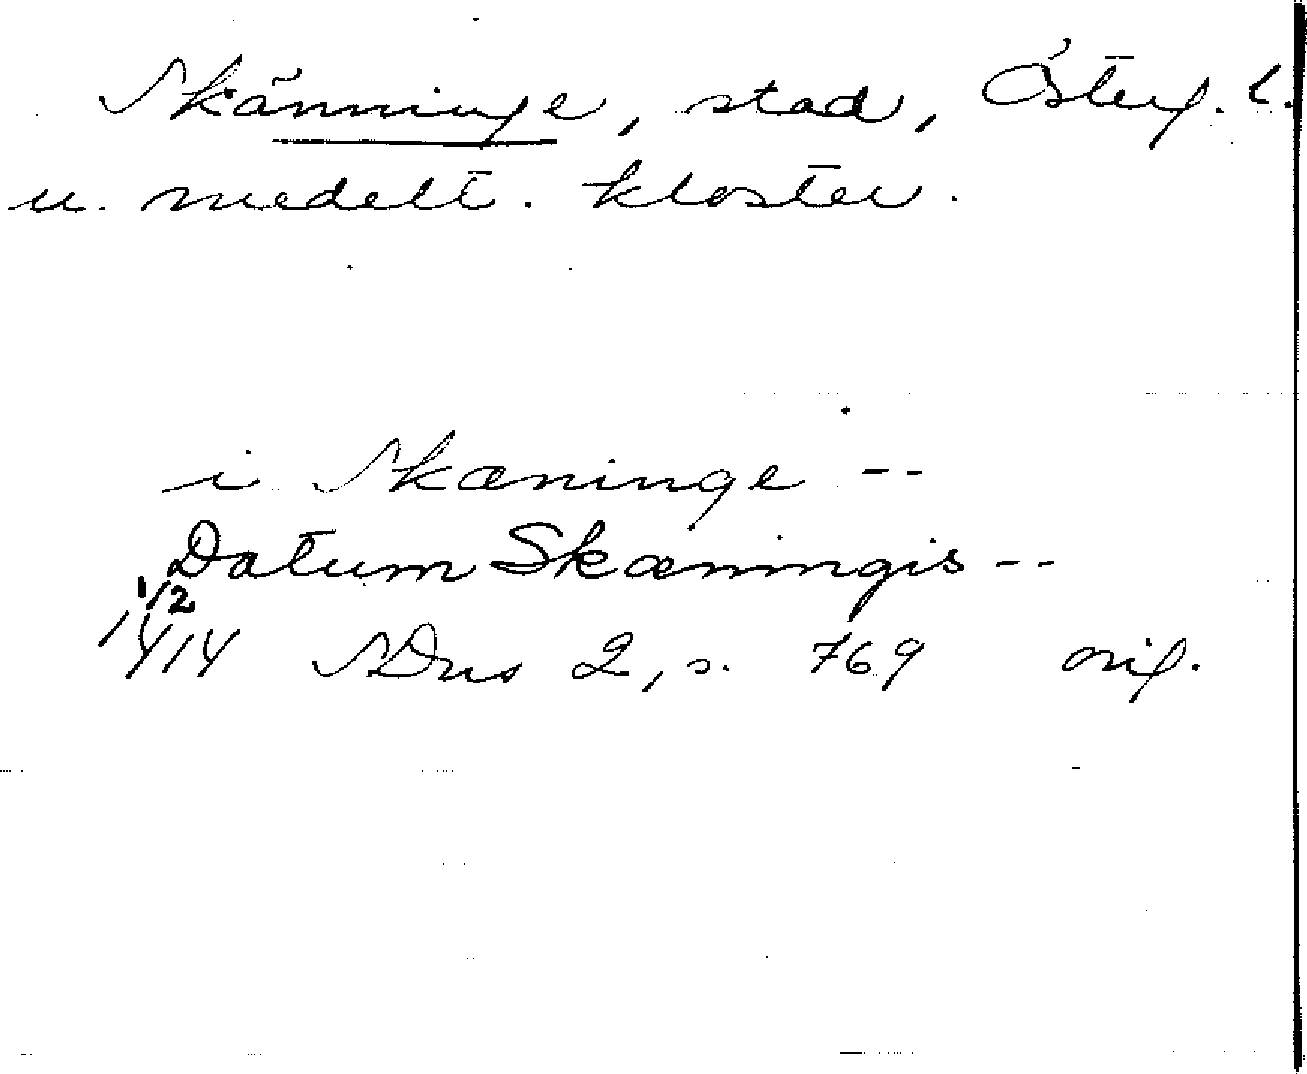 Skänninge, stad, Österg. l.
u. medelt. kloster.
i Skæninge --
Datum Skæningis --
1/2
1414 SDns 2, s. 769 orig.